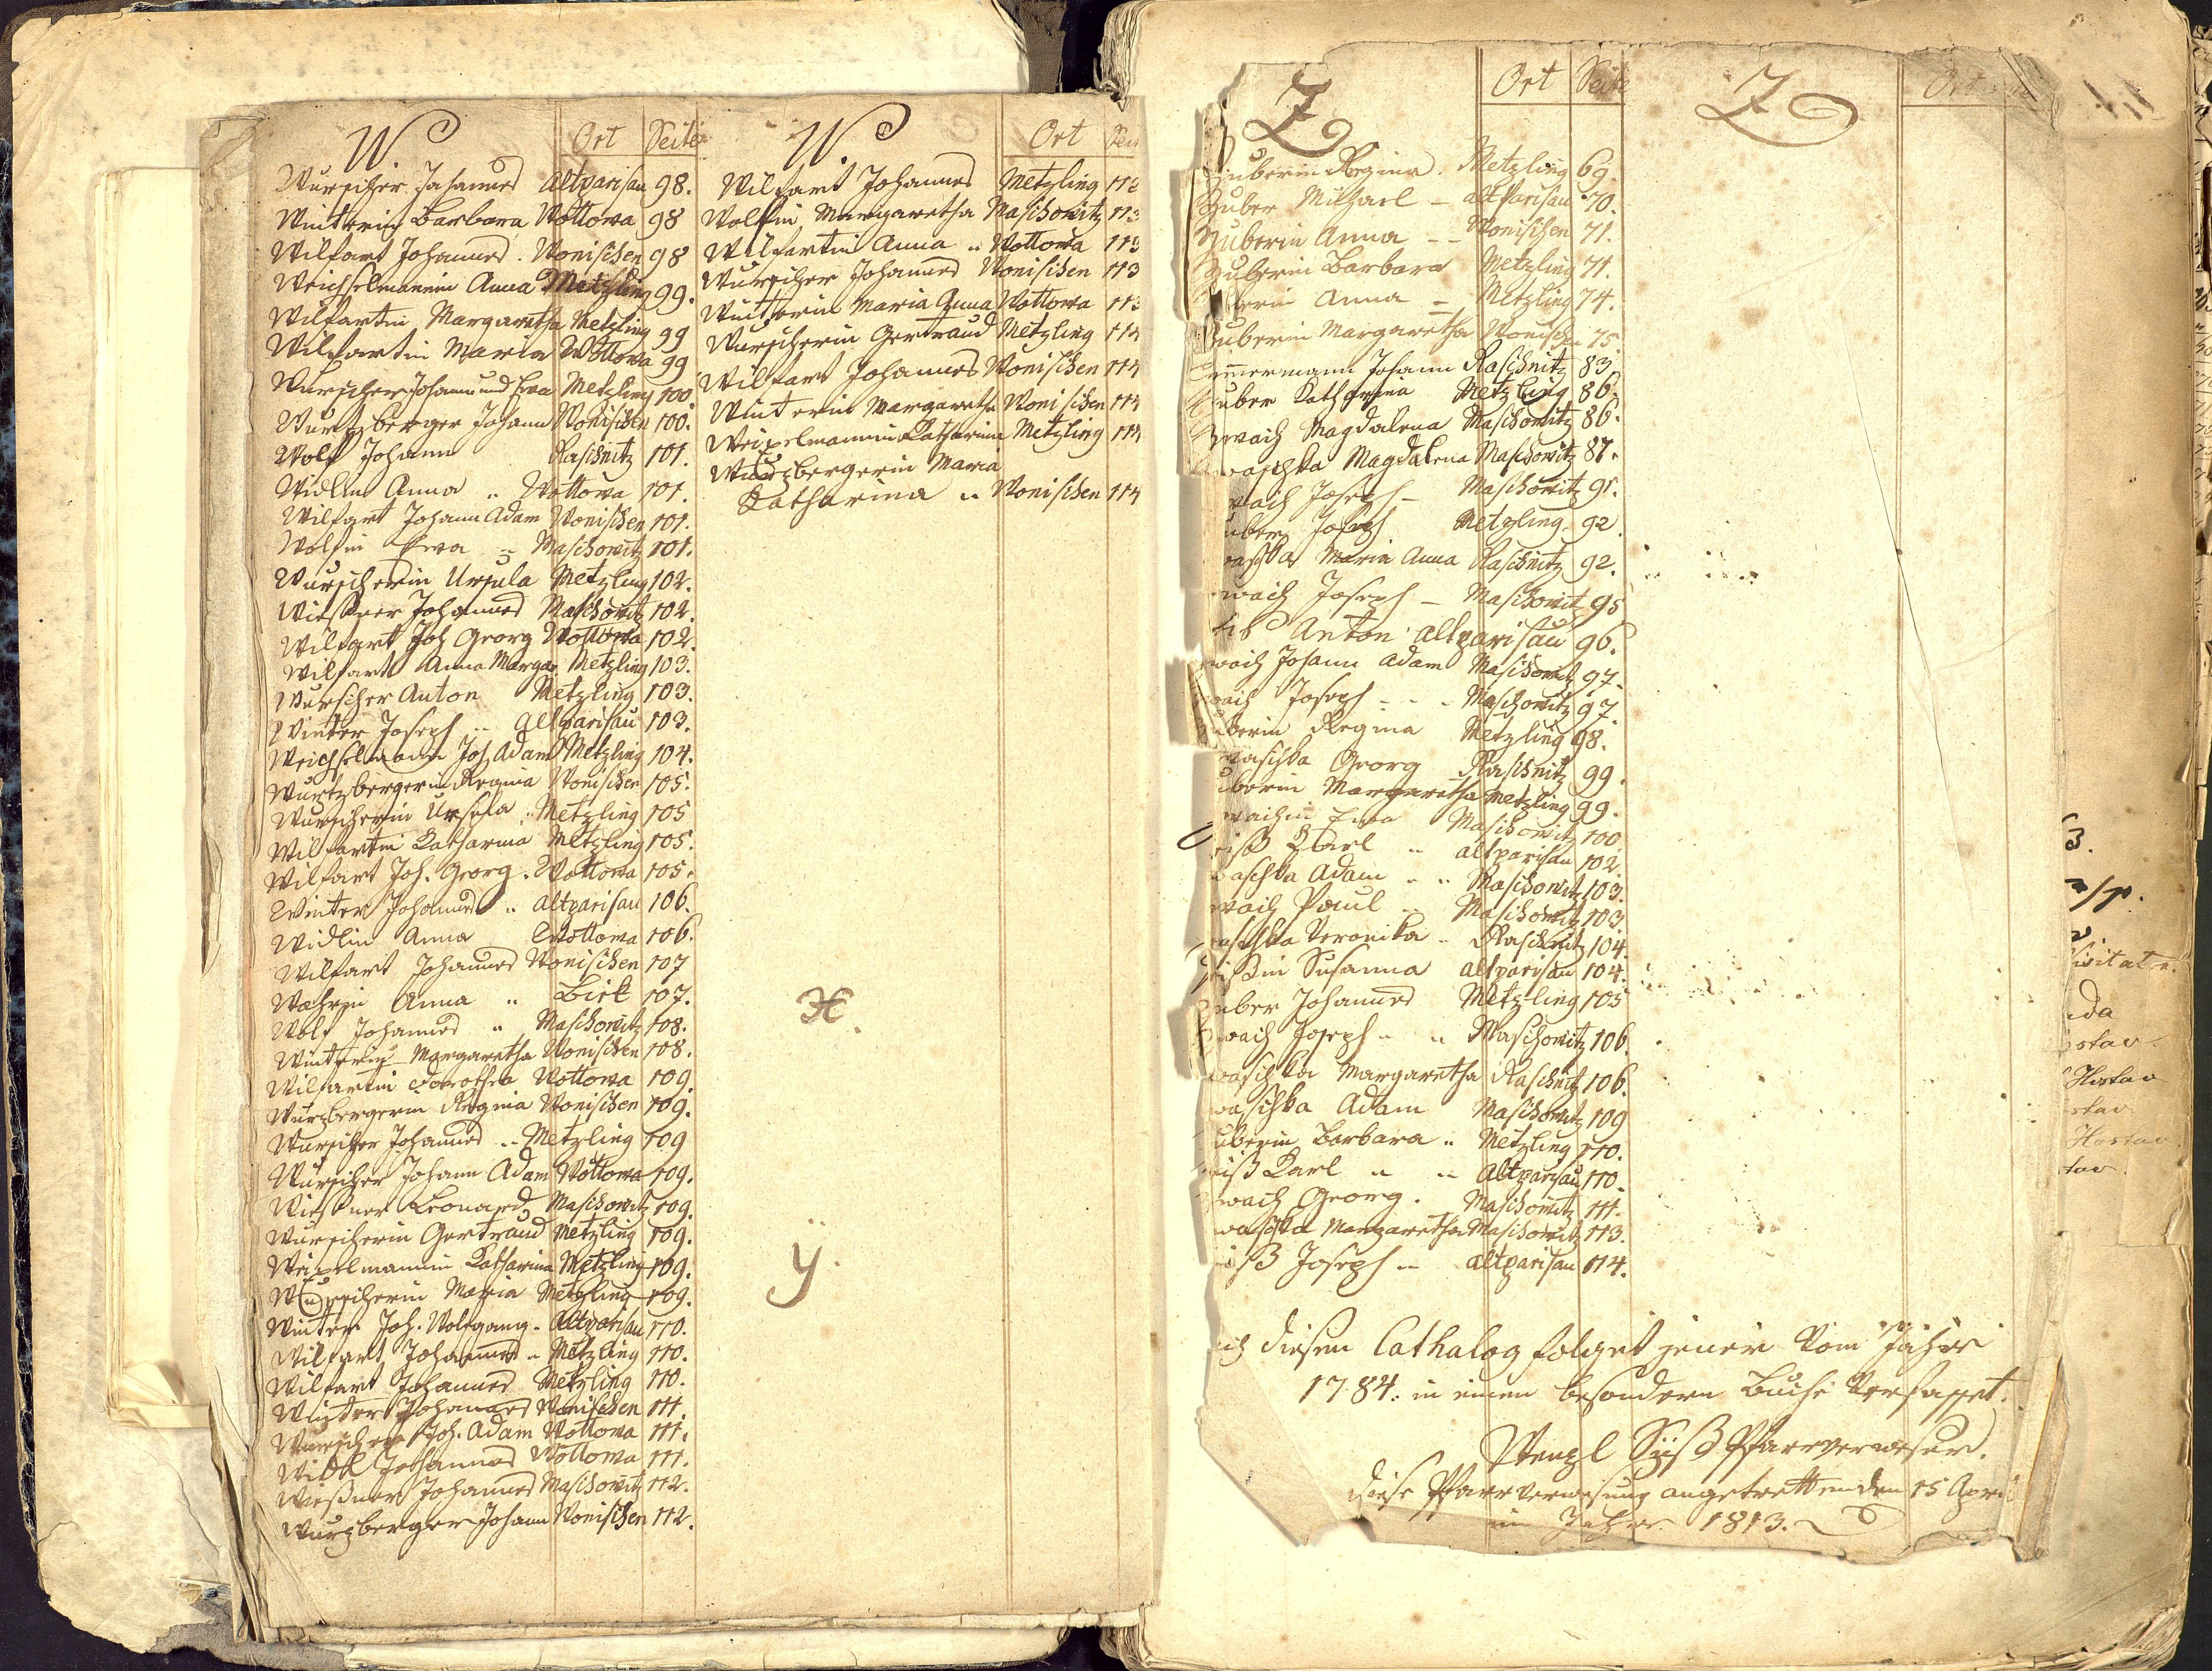 W Ort Seite
Wurscher Johannes Altparisau 98.
Winterin Barbara Wottowa 98
Wilfart Johannes. Wonischen 98
Weichselmannin Anna Metzling 99.
Wilfartin Margaretha Metzling 99
Wilfartin Maria Wottowa 99
Wurscher Johann und Eva Metzling 100
Wurtzberger Johann Wonischen 100.
Wolf Johann Raschnitz 101.
Widlin Anna „ Wottowa 101.
Wilfart Johann Adam Wonischen 101.
Wolfin Ewa „ Maschowitz 101.
Wurscherin Ursula Metzling 102.
Wießner Johannes Maschowitz 102.
Wilfart Joh Georg Wottowa 102.
Wilfart Anna Margar Metzling 103.
Wurscher Anton Metzling 103.
Winter Joseph „ Altparisau 103.
Weichselmann Joh Adam Metzling 104.
Wurtzbergerin Regina Wonischen 105.
Wurscherin Ursula „ Metzling 105
Wilfartin Katharina Metzling 105.
Wilfart Joh. Georg. Wottowa 105.
Winter Johannes „ Altparisau 106.
Widlin Anna Wottowa 106.
Wilfart Johannes Wonischen 107
Anna „ 107.
Wolf Johannes „ Maschowitz 108.
Winterin Margaretha Wonischen 108.
Wilfartin Dorothea Wottowa 109.
Wurzbergerin Regina Wonischen 109.
Wurscher Johannes „ Metzling 109
Wurscher Johann Adam Wottowa 109.
Wießner Leonard Maschowitz 109.
Wurscherin Gertraud Metzling 109.
Weixelmannin Katharina Metzling 109.
Wurscherin Maria Metzling 109.
Winter Joh. Wolfgang. Altparisau 110.
Wilfart Johannes „ Metzling 110.
Wilfart Johannes Metzling 110.
Winter Johannes Wonischen 111.
Wurscher Joh. Adam Wottowa 111.
Widl Johannes Wottowa 111.
Wießner Johannes Maschowitz 112.
Wurzberger Johann Wonischen 112.
W Ort
Wilfart Johannes Metzling 112
Wolfin Margaretha Maschowitz 113
Wilfartin Anna „ Wottowa 113
Wurscher Johannes Wonischen 113
Winterin Maria Anna Wottowa 113
Wurscherin Gertraud Metzling 114
Wilfart Johannes Wonischen 114
Winterin Margaretha Wonischen 114
Weixelmannin Katharina Metzling 114
Wurzbergerin Maria
Katharina „ Wonischen 114
X.
Y.
Z Ort Seite
uberin Regina. Metzling 69.
Zuber Michael – Altparisau 70.
Zuberin Anna – – Wonischen 71.
Zuberin Barbara Metzling 71.
Anna – Metzling 74.
uberin Margaretha Wonischen 75
mermann Johann Raschnitz 83.
uber Katharina Metzling 86.
wach Magdalena Maschowitz 86.
waschka Magdalena Maschowitz 87.
wach Joseph – Maschowitz 91.
uber Joseph Metzling 92.
aschka Maria Anna Raschnitz 92.
wach Joseph – Maschowitz 95
Anton Altparisau 96.
wach Johann Adam Maschowitz 97.
wach Joseph – – – Maschowitz 97.
uberin Regina Metzling 98.
waschka Georg Raschnitz 99.
uberin Margaretha Metzling 99.
wachin Ewa Maschowitz 100
iß Karl „ Altparisau 102.
waschka Adam „ „ Maschowitz 103.
wach Paul „ Maschowitz 103.
aschka Veronika „ Raschnitz 104.
ißin Susanna Altparisau 104.
uber Johannes Metzling 105
wach Joseph „ „ Maschowitz 106.
waschka Margaretha Raschnitz 106.
waschka Adam Maschowitz 109
uberin Barbara „ Metzling 110.
iß Karl „ „ Altparisau 110.
wach Georg. Maschowitz 111.
waschka Margaretha Maschowitz 113.
iß Joseph „ Altparisau 114.
ch diesen Cathalog folget jener vom Jahre
1784: in einem besondern Buche verfasset.
Wenzl Süß Pfarrverweser.
diese Pfarrverwesung angetretten den 15 April
im Jahre 1813.
Z Ort
3.
da
stav
Hostav
stav
Hostav
tav